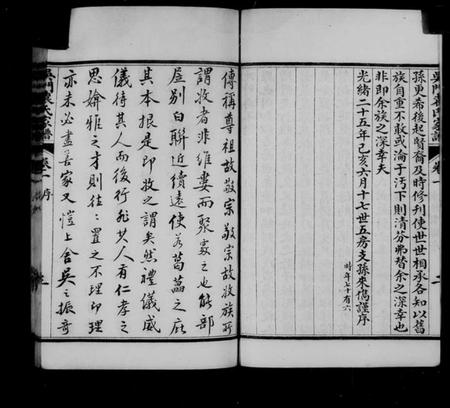 孫更希後起賢裔及時修刊使世世相承各知以舊
族自重不敢或淪于汚下則清芬弗替余之深幸也
非即余族之深幸夫
光緒二十五年己亥六月十七世五房支孫朱儁謹序
時年七十有六
傳稱尊祖故敬宗敬宗故收族所
謂收者非維婁而聚處之也能部
居別白聯近續遠使若葛藟之庇
其本根是即收之謂矣然禮儀威
儀待其人而後行非其人有仁孝之
思媕雅之才則往往置之不理即理
亦未必盡善家又愷上舍吳之振奇
吳門袁氏家譜 卷一 序